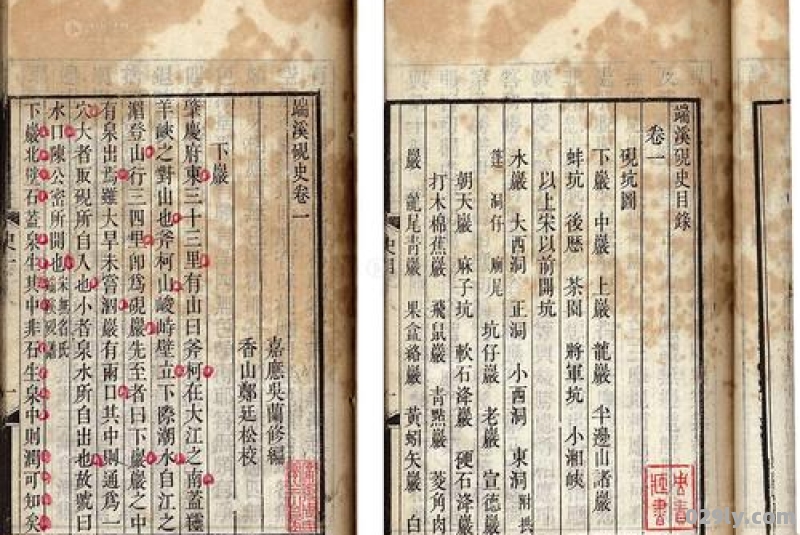 端溪硯史目錄
卷一
硯坑圖
下巖 中巖 上巖 龍巖 半邊山諸巖
蚌坑 後歷 茶園 將軍坑 小湘峽
以上宋以前開坑
水巖 大西洞 正洞 小西洞 東洞 附拱
蓬 洞仔 廟尾 坑仔巖 老巖 宣德巖
朝天巖 麻子坑 軟石洚巖 硬石洚巖
打木棉蕉巖 飛鼠巖 青點巖 菱角肉
巖 龍尾青巖 果盒絡巖 黃蚓矢巖 白
端溪硯史卷一
嘉應吳蘭修編
香山鄭廷松校
下巖
肇慶府東三十三里有山曰斧柯在大江之南蓋靈
羊峽之對山也斧柯山峻峙壁立下際潮水自江之
湄登山行三四里卽爲硯巖先至者曰下巖巖之中
有泉出焉雖大旱未嘗涸巖有兩口其中則通爲一
穴大者取硯所自入也小者泉水所自出也故號曰
水口陳公密所開也 宋無名氏端溪硯譜
下巖北壁石蓋泉生其中非石生泉中則潤可知矣
一
029ly.com